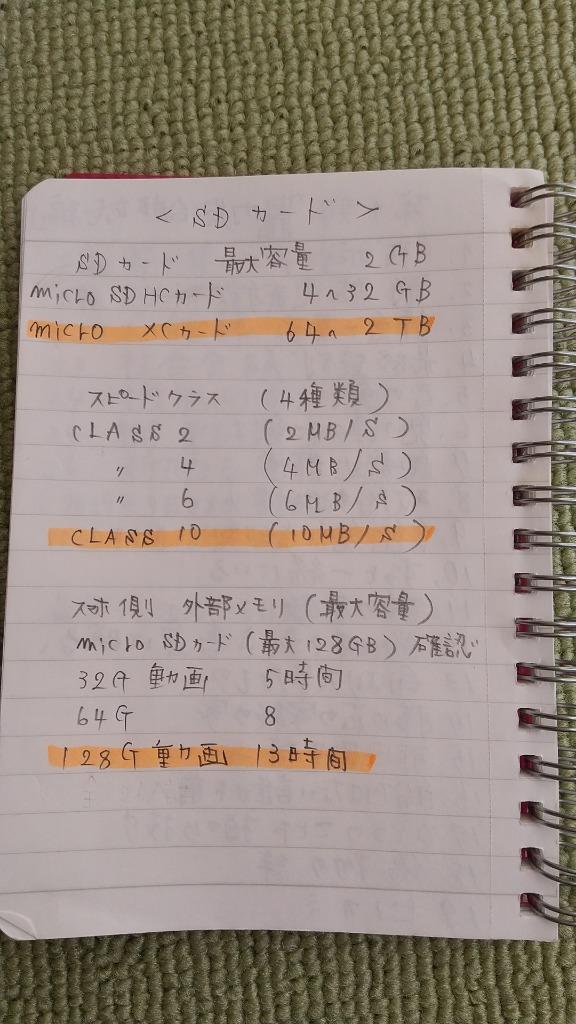 < SDカード >
SDカード 最大容量 2GB
micro SDHCカード 4~32GB
micro XCカード 64~2TB
スピードクラス (4種類)
CLASS 2 (2MB/S)
〃 4 (4MB/S)
〃 6 (6MB/S)
CLASS 10 (10MB/S)
スマホ側 外部メモリ (最大容量)
micro SDカード (最大128GB) 確認
32G 動画 5時間
64G 8
128G 動画 13時間